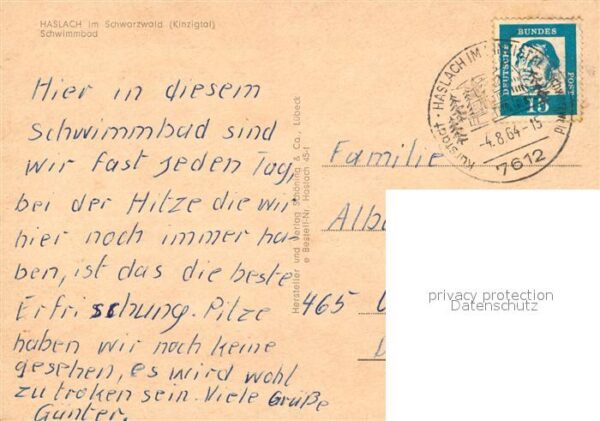 HASLACH im Schwarzwald (Kinzigtal)
Schwimmbad
Hier in diesem
Schwimmbad sind
wir fast jeden Tag,
bei der Hitze die wir
hier noch immer ha-
ben, ist das die beste
Erfrischung. Pilze
haben wir noch keine
gesehen, es wird wohl
zu troken sein. Viele Grüße
Günter.
Hersteller und Verlag Schöning & Co., Lübeck
Bestell-Nr. Haslach 454
DEUTSCHE BUNDES POST
15
HASLACH IM
-4.8.64-15
7612
Familie
Albe
465
privacy protection
Datenschutz